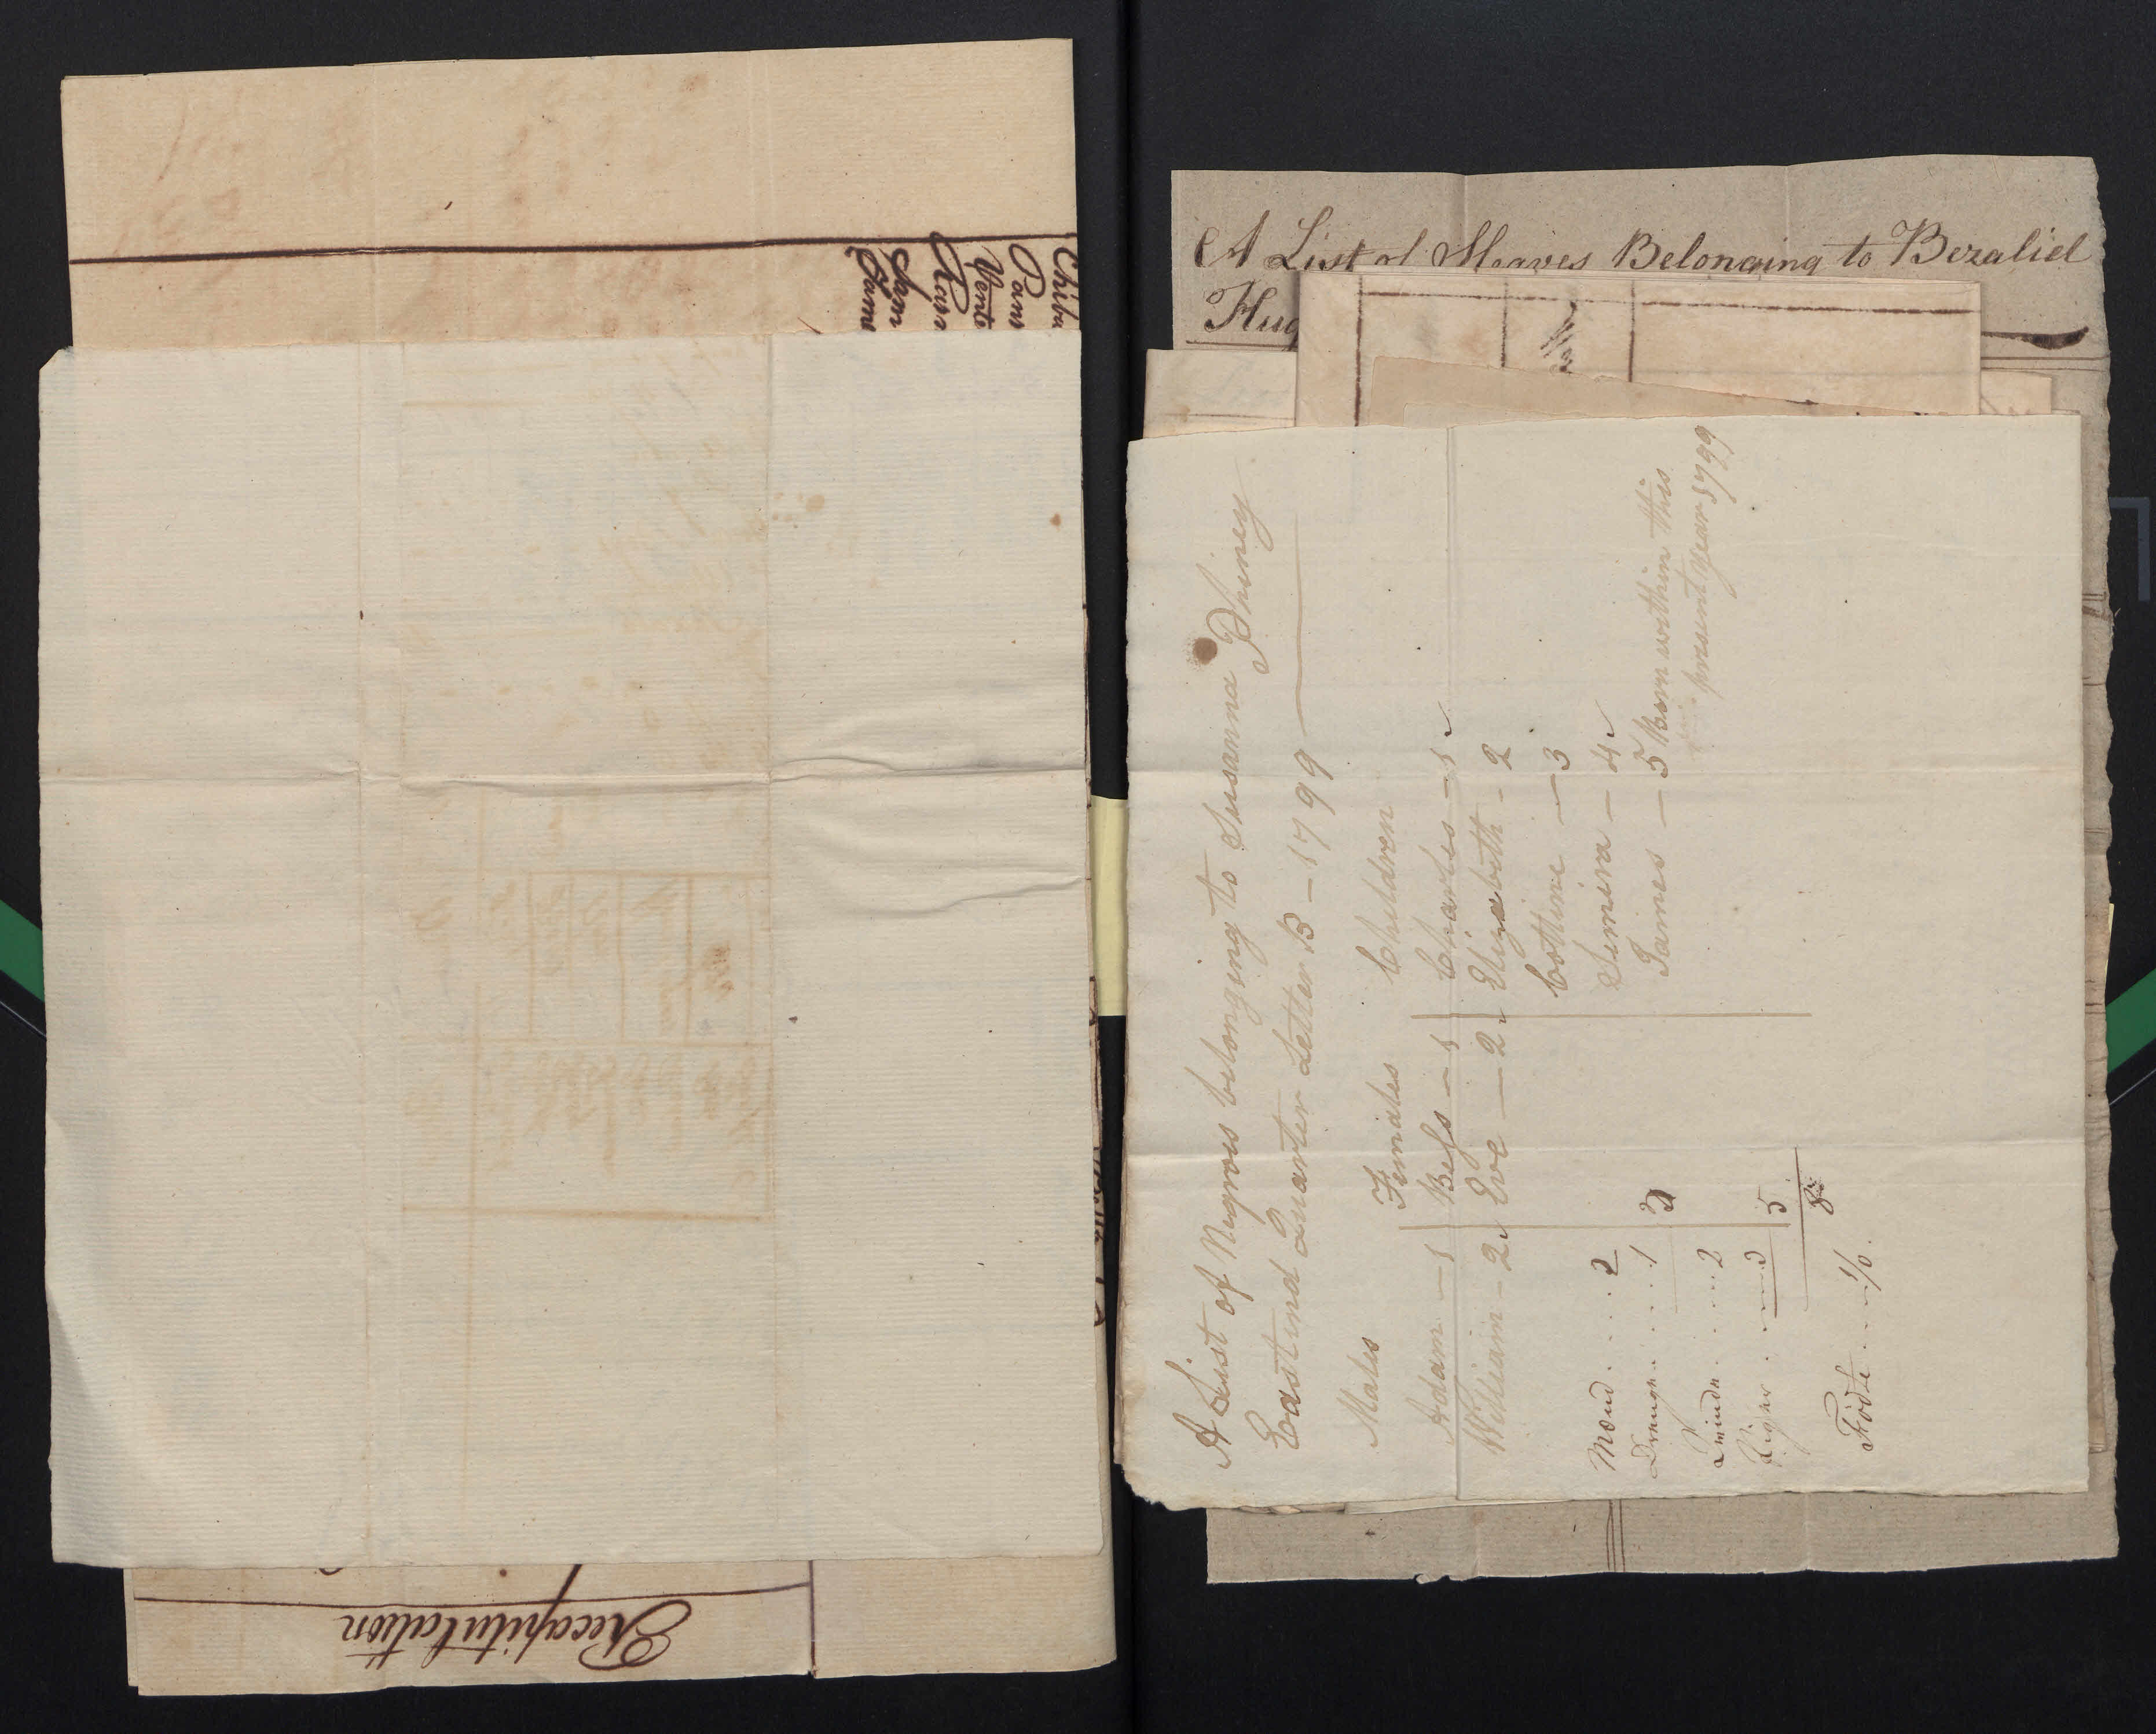 Recapitulation
Jam
Sam
Chiba
A List of Negroes belonging to Susanna Phiney
Eastend Quarter Letter B - 1799
Males
Females
Children
Adam - 1
Bess - 1
Charles - 1
William - 2
Eve - 2
Elizabeth - 2
Cottine - 3
Semira - 4
James - 5 Born within this
present year 1799
Mænd . . . . 2
Drenge . . . . . 1
3
Qvinde . . . . . 2
Piger . . . . 3
5
8
Födte . . . . 1/0.
A List of Slaves Belonging to Bezaliel